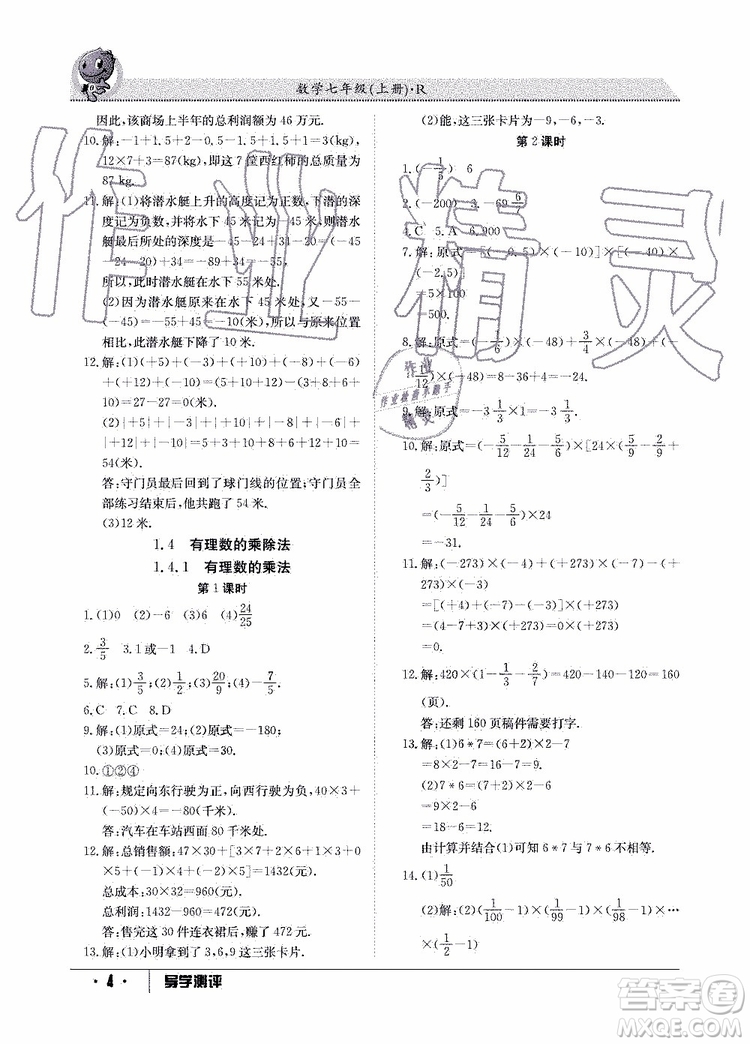 数学七年级(上册)·R
因此,该商场上半年的总利润额为 46 万元.
10.解:-1+1.5+2-0.5-1.5+1.5+1=3(kg),
12×7+3=87(kg),即这 7 筐西红柿的质量共
87 kg.
11.解:(1)将潜水艇上升的高度记为正数,下潜的
深度记为负数,并将水下 45 米记为-45 米,潜水
艇最后所处的深度是:(-45)+34+(-20)=(-45
-20)+34=-65+34
所以,此时潜水艇在水下
(2)因为潜水艇原来在水下 45 米处,
(-45)=-55+45=-10(米),所以与原来位置
相比,此潜水艇下降了 10 米.
12.解:(1)(+5)+(-3)+(+10)+(-8)+(-6)
+(+12)+(-10)=(5+10+12)-(3+8+6
+10)=27-27=0(米).
(2)|+5|+|-3|+|+10|+|-8|+|-6|+
|+12|+|-10|=5+3+10+8+6+12+10=
54(米).
答:守门员回到了球门线的位置;守门员
全部练习结束后,他共跑了 54 米.
(3)12 米.
1.4 有理数的乘除法
1.4.1 有理数的乘法
第 1 课时
1.(1)0 (2)-6 (3)6 (4)24/25
2.3/5 3.1或-1 4.D
5.解:(1)3/5;(2)1/2;(3)20/9;(4)-1/3.
6.C 7.C 8.D
9.解:(1)原式=24;(2)原式=-180;
(3)原式=-15;(4)原式=0.
10.①②④
11.解:规定向东行驶为正,向西行驶为负. 40×3+
(-50)×4=-80(千米).
答:汽车在车站西面 80 千米处.
12.解:总销售额:47×30+[3×7+2×6+1×3+0
×5+(-1)×4+(-2)×5]=1432(元).
总成本:32×30=960(元).
总利润:1432-960=472(元).
答:售完这 30 件连衣裙后,赚了 472 元.
13.解:(1)小明拿到了 3,6,9 这三张卡片.
(2)能,这三张卡片为-9,-6,-3.
第 2 课时
1.(-1/5) 6
2.(-200) 3.-69 6/6
4.C 5.A 6.900
7.解:原式=[(-0.5)×(-10)]×[(-40)×
(-2.5)]
=5×100
=500.
8.解:原式=1/2×(-48)+3/4×(-48)+
(-1/12)×(-48)=
9.解:原式=-3 1/3×1=-3 1/3.
10.解:原式=(-5/12-1/24-5/6)×[24×(1/3+
2/3)]
=(-5/12-1/24-5/6)×24
=-31.
11.解:(-273)×(+4)+(-7)×(-273)+(+
273)×(-3)
=[(+4)+(-7)-(-3)]×(-273)
=(4-7+3)×(-273)
=0.
12.解:420×(1-1/3-2/7)=420-140-120=160
(页).
答:还剩 160 页稿件需要打字.
13.解:(1)6*7=(6+2)×7-2
=8×7-2
(2)7*6=(7+2)×6-2
=9×6-2
由计算并结合(1)可知 6*7 与 7*6 不相等.
14.(1)1/50
(2)解:(1/100-1)×(1/99-1)×(1/98-1)×…
×(1/2-1)
·4· 导学测评
作业精灵
答案圈
MXQE.COM